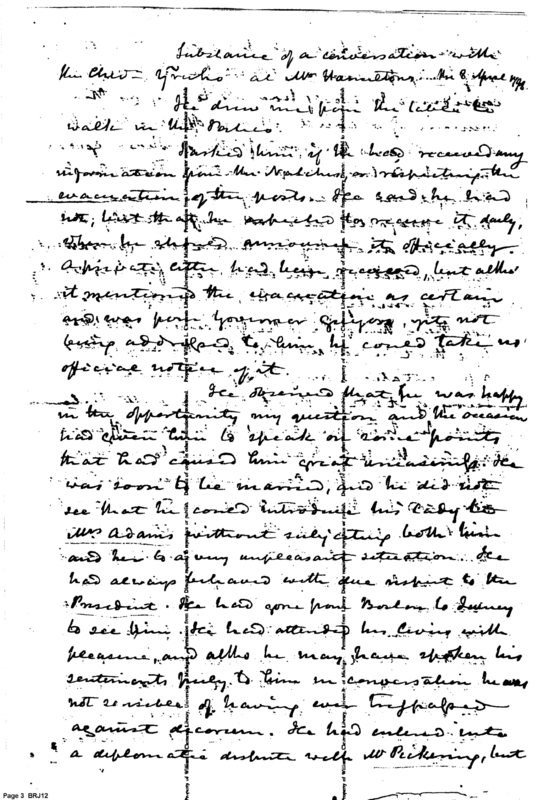 Substance of a conversation with
the Chev. Yrucho at Mr Hamiltons the 8 April 1798
He drew me from the table to
walk in the Patio
I asked him if he had received any
information from the Natchez or respecting the
evacuation of the posts. He said he had
not, but that he expected to receive it daily,
when he should announce it officially.
A private letter had been received, but altho
it mentioned the evacuation as certain
and was from Governor Gayoso, yet not
being addressed to him he could take no
official notice of it.
He observed that he was happy
in the opportunity my question and the occasion
had given him to speak on some points
that had caused him great uneasiness. He
was soon to be married, and he did not
see that he could introduce his Lady to
Mrs Adams without subjecting both him
and her to a very unpleasant situation. He
had always behaved with due respect to the
President. He had gone from Boston to Quincy
to see him. He had attended his Levies with
pleasure, and altho he may have spoken his
sentiments freely to him in conversation he was
not sensible of having ever trespassed
against decorum. He had entered into
a diplomatic dispute with Mr Pickering, but
Page 3 BRJ12